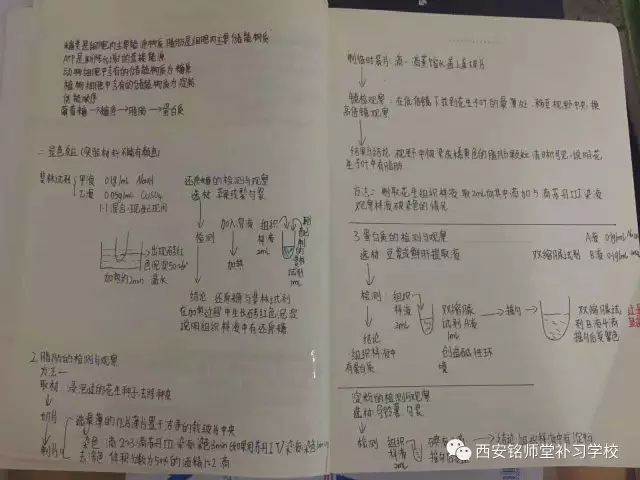 糖类是细胞内主要能源物质 脂肪是细胞内主要储能物质
ATP是新陈代谢的直接能源
动物细胞中含有的储能物质为糖原
植物细胞中含有的储能物质为淀粉
供能顺序
葡萄糖→糖原→脂肪→蛋白质
二 显色反应(实验材料不能有颜色)
斐林试剂 甲液 0.1g/mL NaOH
乙液 0.05g/mL CuSO4
1:1混合,现配现用
出现砖红
色沉淀50~65℃
加热约2min 温水
还原糖的检测与观察
选材 苹果或梨匀浆
检测 加入等液 组织
样液
2mL
加热
结论 还原糖与斐林试剂
在加热过程中生成砖红色沉淀
说明组织样液中有还原糖
2. 脂肪的检测与观察
方法一
取材:浸泡过的花生种子去掉种皮
切片
选最薄的几片薄片置于洁净的载玻片中央
制片
染色:滴2~3滴苏丹III染液染色3min
去浮色 体积分数为50%的酒精1~2滴
制临时装片:滴一滴蒸馏水盖上盖玻片
镜检观察:在低倍镜下找到花生子叶的最薄处 移至视野中央,换
高倍镜观察
结果与结论 视野中被染成橘黄色的脂肪颗粒清晰可见,说明花
生子叶中有脂肪
方法二:制取花生组织样液 取2mL向其中滴加3滴苏丹III染液
观察样液被染色的情况
3.蛋白质的检测与观察
A液 0.1g/mL
选材 豆浆或鲜肝提取液
双缩脲试剂 B液
检测 组织
样液
2mL
双缩脲
试剂A液
1mL
摇匀
双缩脲试
剂B液4滴
摇匀后呈紫色
结论
组织样液中
有蛋白质
创造碱性环
境
淀粉的检测与观察
选材 马铃薯匀浆
检测 组织
样液
2mL
结论 组织样液中有淀粉
西安铭师堂补习学校